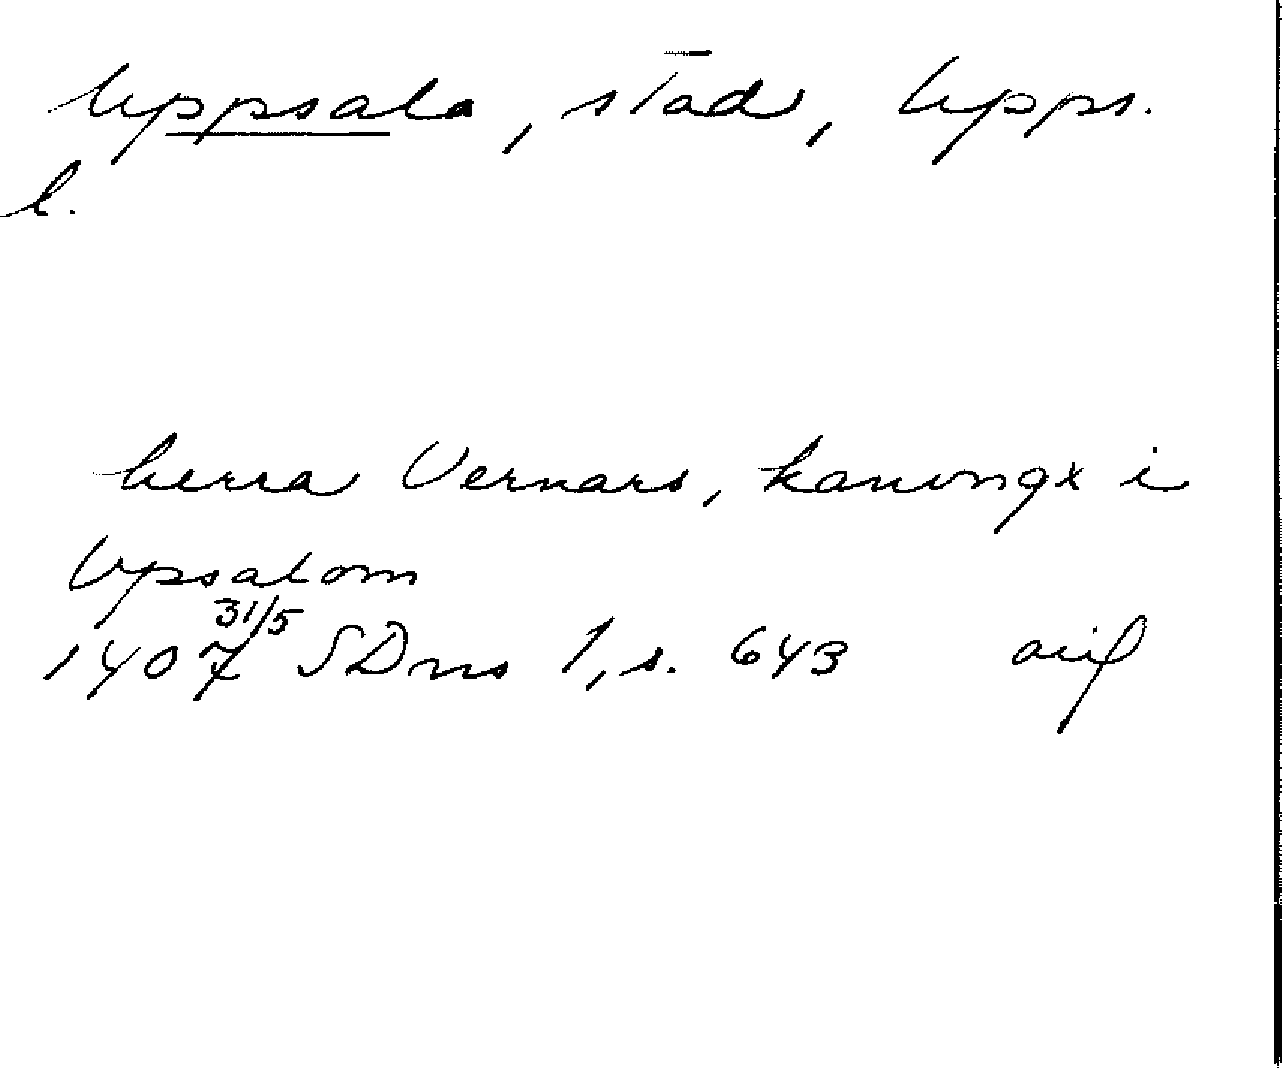 Uppsala, stad, Upps.
l.
herra Vernars, kanongx i
Vpsalom
1407 31/5 SDns 1, s. 643 avf